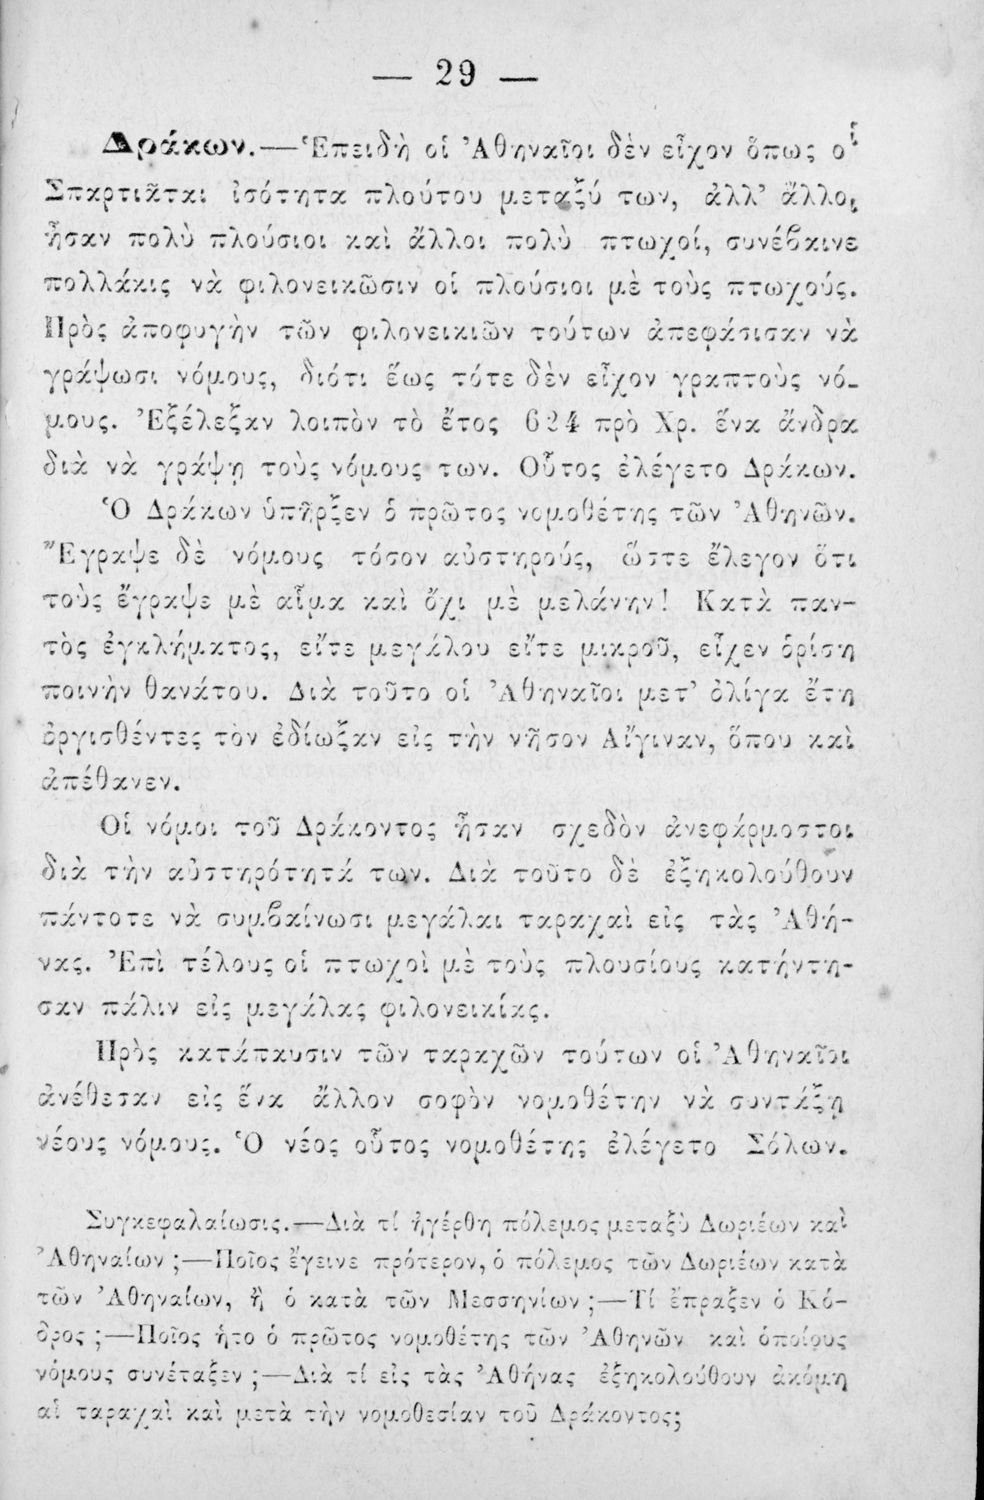 — 29 —
Δράκων.—Ἐπειδὴ οἱ Ἀθηναῖοι δὲν εἶχον ὅπως οἱ
Σπαρτιᾶται ἰσότητα πλούτου μεταξύ των, ἀλλ' ἄλλοι
ἦσαν πολὺ πλούσιοι καὶ ἄλλοι πολὺ πτωχοί, συνέβαινε
πολλάκις νὰ φιλονεικῶσιν οἱ πλούσιοι μὲ τοὺς πτωχούς.
Πρὸς ἀποφυγὴν τῶν φιλονεικιῶν τούτων ἀπεφάσισαν νὰ
γράψωσι νόμους, διότι ἕως τότε δὲν εἶχον γραπτοὺς νό-
μους. Ἐξέλεξαν λοιπὸν τὸ ἔτος 624 πρὸ Χρ. ἕνα ἄνδρα
διὰ νὰ γράψῃ τοὺς νόμους των. Οὗτος ἐλέγετο Δράκων.
Ὁ Δράκων ὑπῆρξεν ὁ πρῶτος νομοθέτης τῶν Ἀθηνῶν.
Ἔγραψε δὲ νόμους τόσον αὐστηρούς, ὥστε ἔλεγον ὅτι
τοὺς ἔγραψε μὲ αἷμα καὶ ὄχι μὲ μελάνην! Κατὰ παν-
τὸς ἐγκλήματος, εἴτε μεγάλου εἴτε μικροῦ, εἶχεν ὁρίσῃ
ποινὴν θανάτου. Διὰ τοῦτο οἱ Ἀθηναῖοι μετ' ὀλίγα ἔτη
ὀργισθέντες τὸν ἐδίωξαν εἰς τὴν νῆσον Αἴγιναν, ὅπου καὶ
ἀπέθανεν.
Οἱ νόμοι τοῦ Δράκοντος ἦσαν σχεδὸν ἀνεφάρμοστοι
διὰ τὴν αὐστηρότητά των. Διὰ τοῦτο δὲ ἐξηκολούθουν
πάντοτε νὰ συμβαίνωσι μεγάλαι ταραχαὶ εἰς τὰς Ἀθή-
νας. Ἐπὶ τέλους οἱ πτωχοὶ μὲ τοὺς πλουσίους κατήντη-
σαν πάλιν εἰς μεγάλας φιλονεικίας.
Πρὸς κατάπαυσιν τῶν ταραχῶν τούτων οἱ Ἀθηναῖοι
ἀνέθεσαν εἰς ἕνα ἄλλον σοφὸν νομοθέτην νὰ συντάξῃ
νέους νόμους. Ὁ νέος οὗτος νομοθέτης ἐλέγετο Σόλων.
Συγκεφαλαίωσις.—Διὰ τί ἠγέρθη πόλεμος μεταξὺ Δωριέων καὶ
Ἀθηναίων ;—Ποῖος ἔγεινε πρότερον, ὁ πόλεμος τῶν Δωριέων κατὰ
τῶν Ἀθηναίων, ἢ ὁ κατὰ τῶν Μεσσηνίων ;—Τί ἔπραξεν ὁ Κό-
δρος ;—Ποῖος ἦτο ὁ πρῶτος νομοθέτης τῶν Ἀθηνῶν καὶ ὁποίους
νόμους συνέταξεν ;—Διὰ τί εἰς τὰς Ἀθήνας ἐξηκολούθουν ἀκόμη
αἱ ταραχαὶ καὶ μετὰ τὴν νομοθεσίαν τοῦ Δράκοντος;